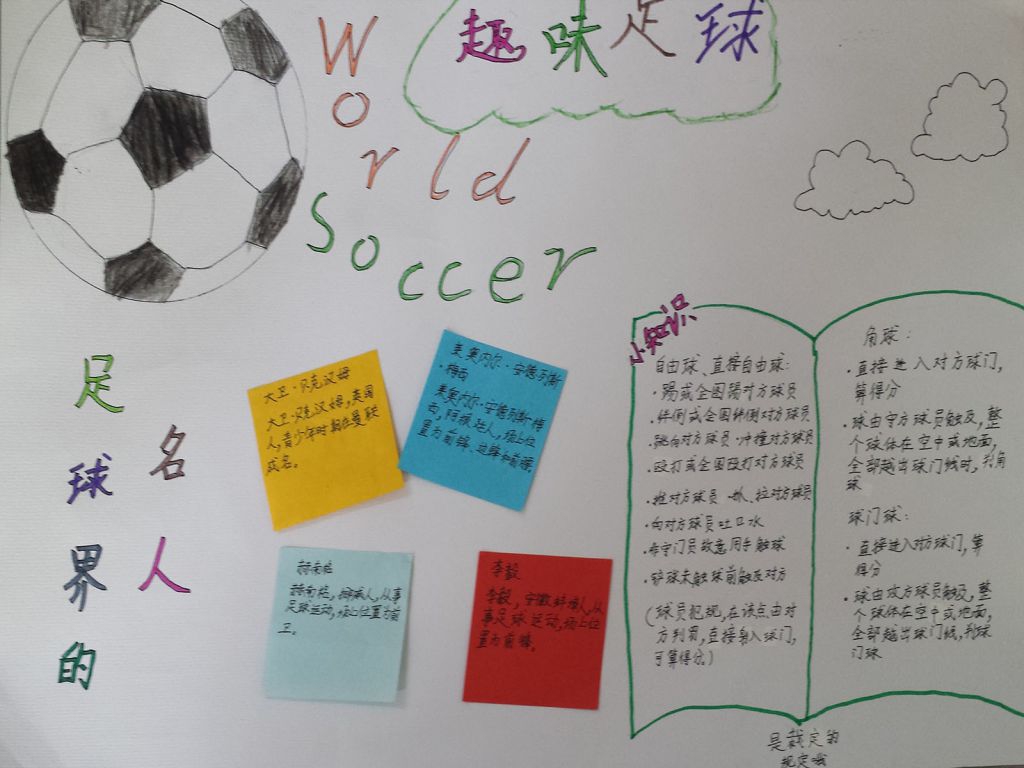 趣味足球
World
Soccer
足球界的
名人
大卫·贝克汉姆
大卫·贝克汉姆,英国
人,青少年时期在曼联
成名。
莱奥内尔·安德列斯
·梅西
莱奥内尔·安德列斯·梅
西,阿根廷人,场上位
置为前锋、边锋和前腰
人,从事
足球运动,场上位置为前
卫。
李毅
李毅,安徽蚌埠人,从
事足球运动,场上位
置为前锋。
小知识
自由球、直接自由球:
·踢或企图踢对方球员
·绊倒或企图绊倒对方球员
·跳向对方球员·冲撞对方球员
·殴打或企图殴打对方球员
·推对方球员·扒、拉对方球员
·向对方球员吐口水
·守门员故意用手触球
·铲球未触球前触及对方
(球员犯规,在该点由对
方判罚,直接射入球门,
可算得分)
角球:
·直接进入对方球门,
算得分
·球由守方球员触及,整
个球体在空中或地面,
全部越出球门线时,判角
球
球门球:
·直接进入对方球门,算
得分
·球由攻方球员触及,整
个球体在空中或地面,
全部越出球门线,判球
门球
是裁定的
规定哦